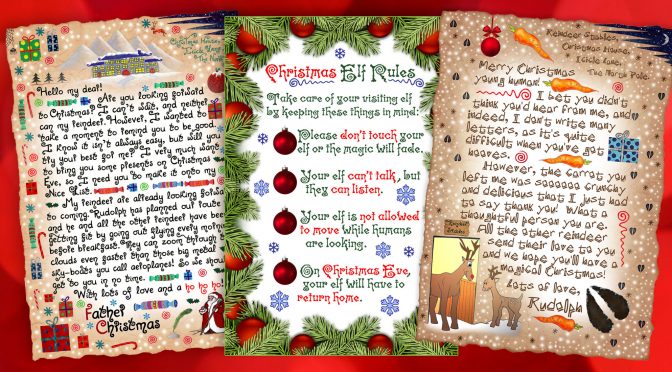 The
Christmas House
Icicle Lane
The North
Hello my dear!
Are you looking forward
to Christmas? I can't wait, and neither
can my reindeer. However, I wanted to
take a moment to remind you to be good.
I know it isn't always easy, but will you
try your best for me? I very much want
to bring you some presents on Christmas
Eve, so I need you to make it onto my
Nice List.
My reindeer are already looking forward
to coming. Rudolph has planned our route
and he and all the other reindeer have been
getting fit by going out flying every morning
before breakfast. They can zoom through
clouds even faster than those big metal
sky-boats you call aeroplanes! So we should
get to you in no time.
With lots of love and a ho ho ho!
Father
Christmas
Christmas Elf Rules
Take care of your visiting elf
by keeping these things in mind:
Please don't touch your
elf or the magic will fade.
Your elf can't talk, but
they can listen.
Your elf is not allowed
to move while humans
are looking.
On Christmas Eve,
your elf will have to
return home.
Reindeer Stables,
Christmas House,
Icicle Lane,
The North Pole
Merry Christmas
young human!
I bet you didn't
think you'd hear from me, and
indeed, I don't write many
letters, as it's quite
difficult when you've got
hooves.
However, the carrot you
left me was soooooo crunchy
and delicious that I just had
to say thank you! What a
thoughtful person you are.
All the other reindeer
send their love to you
and we hope you'll have a
magical Christmas!
Lots of love,
Rudolph